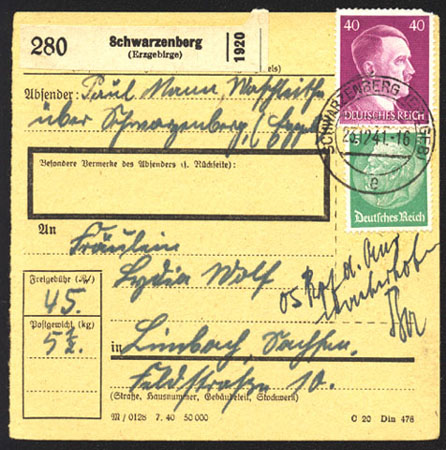 280
Schwarzenberg
(Erzgebirge)
1920
40 40
DEUTSCHES REICH
Absender: Paul Mann, Waschleithe
über Schwarzenberg, (Erzgeb
SCHWARZENBERG (ERZGEB)
23.12.41.-16
e
Deutsches Reich
Besondere Vermerke des Absenders (s. Rückseite):
An
Fräulein
Lydia Wolf
Freigebühr (Rℳ)
45.
Postgewicht (kg)
5½.
in Limbach, Sachsen.
Feldstraße 10.
(Straße, Hausnummer, Gebäudeteil, Stockwerk)
M/0128 7. 40 50 000
C 20 Din 476